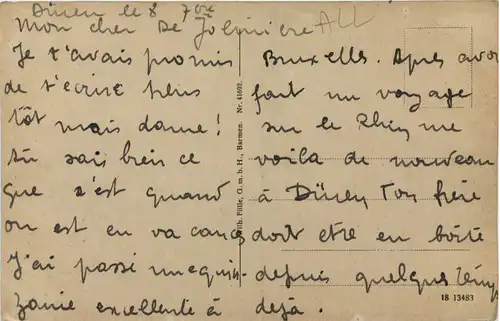 Düren le 8 7bre
Mon cher De Jolinière ALL
Je t'avais promis
de t'écrire plus
tôt mais dame!
tu sais bien ce
que c'est quand
on est en vacances
J'ai passé une quin-
zaine excellente à
Bruxelles. Apres avoir
fait un voyage
sur le Rhin me
voila de nouveau
à Düren Ton frère
doit etre en boîte
depuis quelques temps
déjà.
Wilh. Fülle, G. m. b. H., Barmen. Nr. 41692.
18 13483